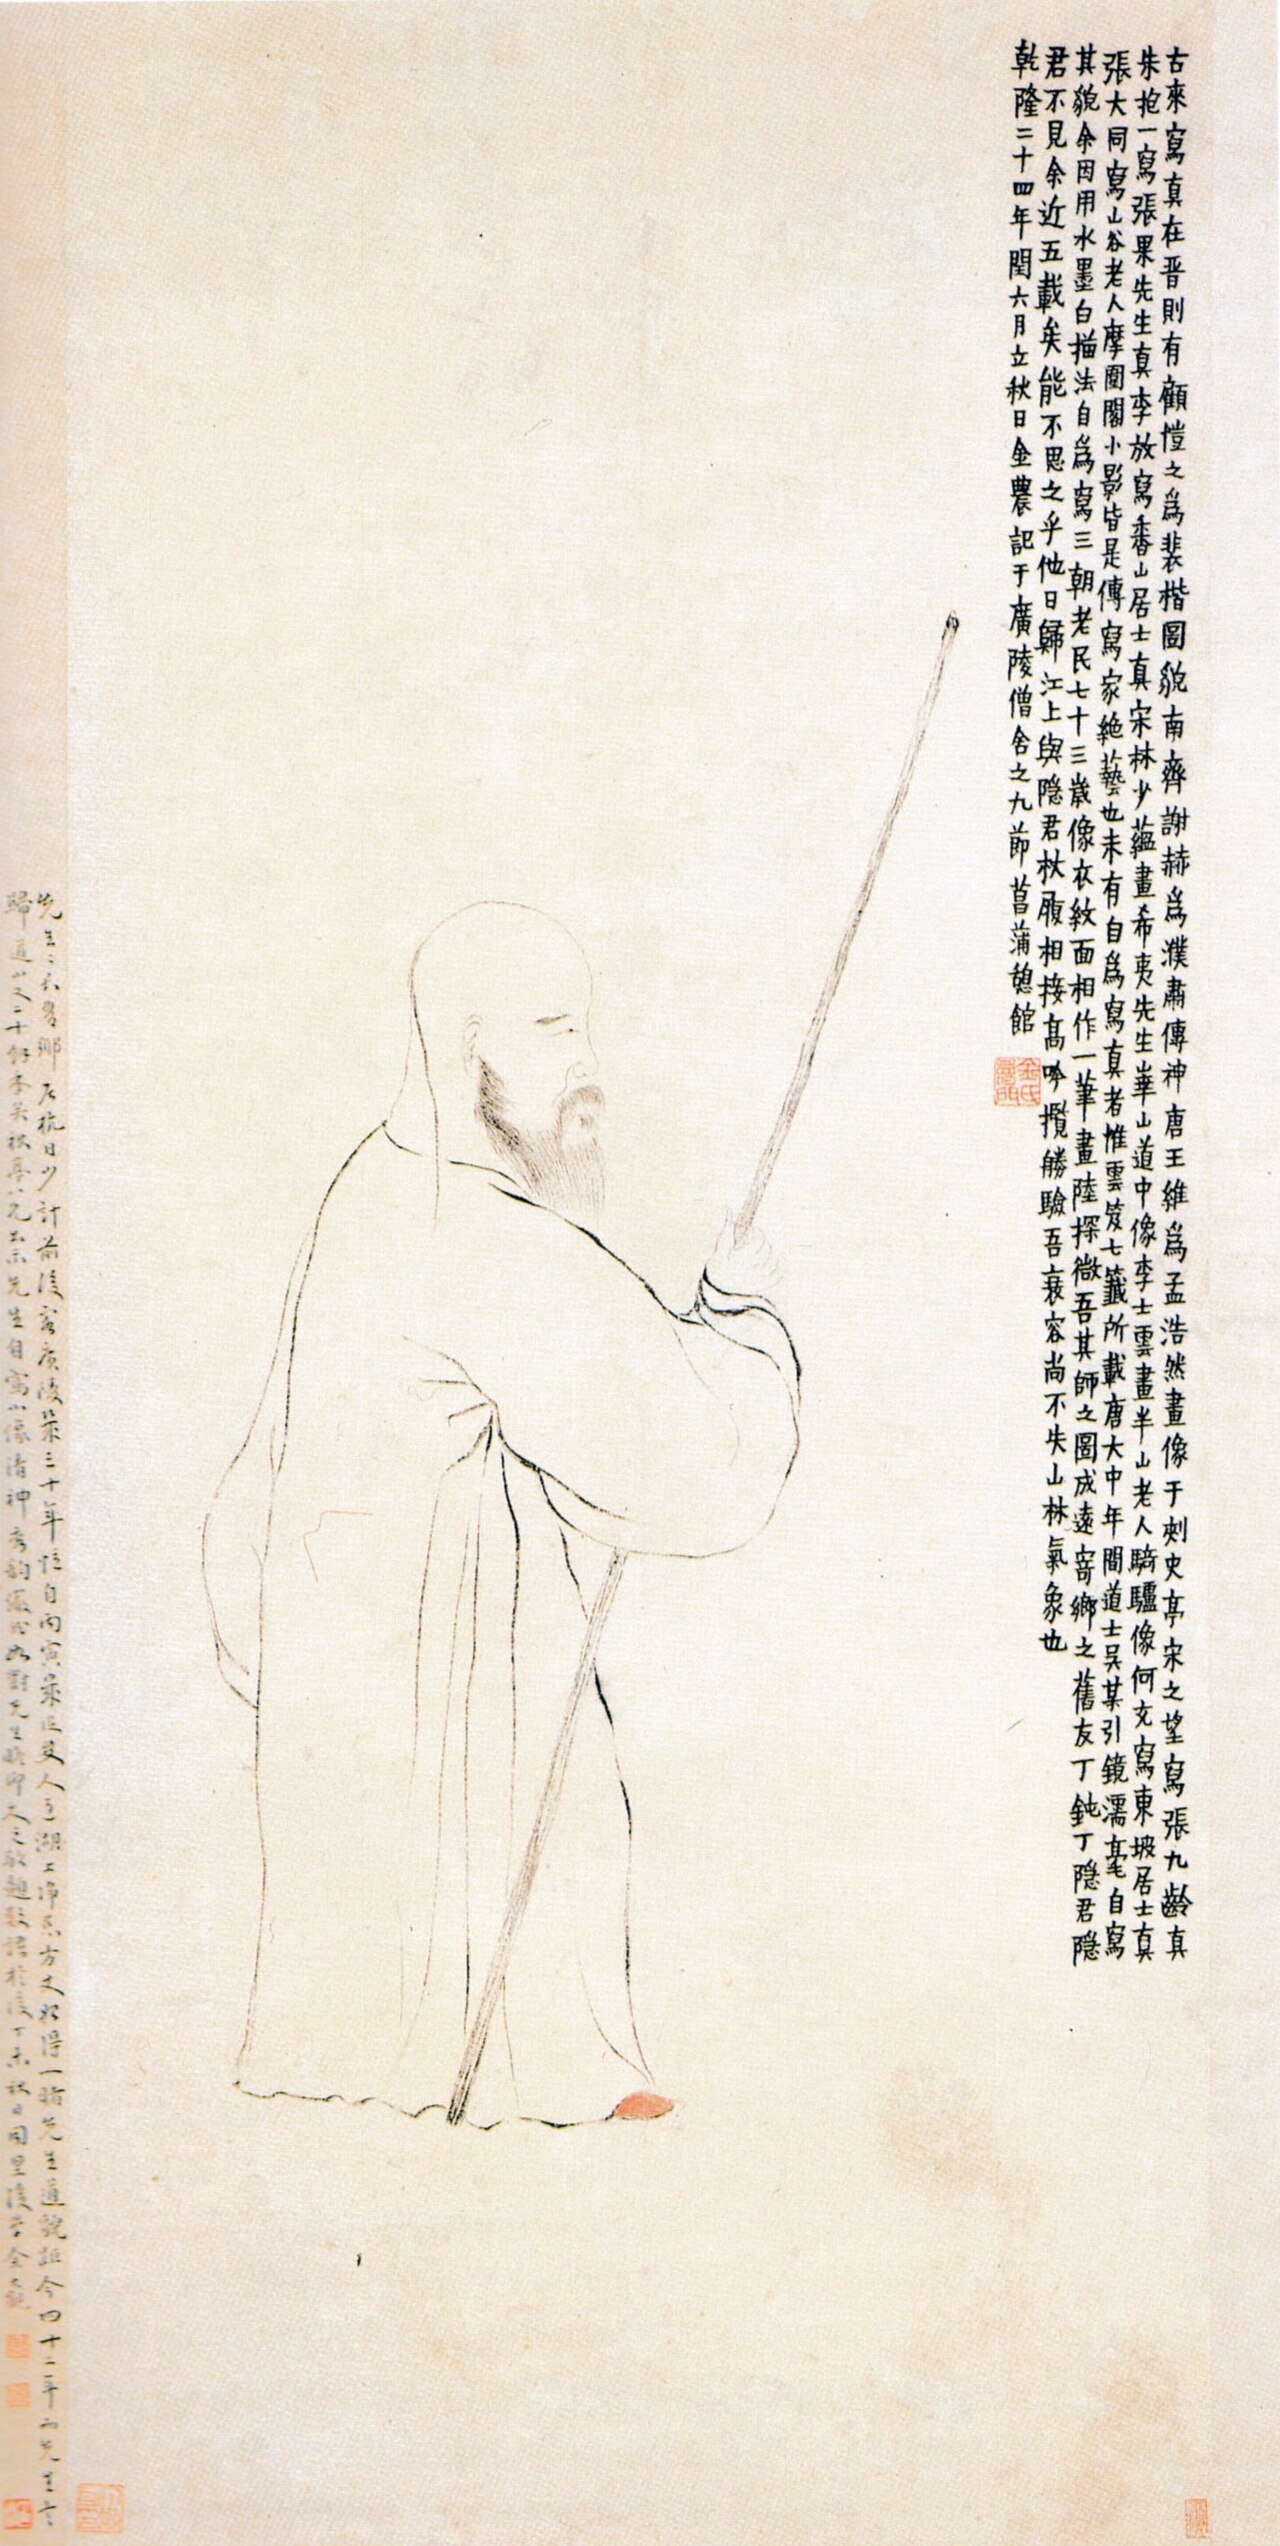 古來寫真在晉則有顧愷之爲裴楷圖貌南齊謝赫爲濮肅傳神唐王維爲孟浩然畫像于刺史亭宋之望寫張九齡真
朱抱一寫張果先生真李放寫香山居士真宋林少蘊畫希夷先生華山道中像李士雲畫半山老人騎驢像何充寫東坡居士真
張大同寫山谷老人摩圍閣小影皆是傳寫家絶藝也未有自爲寫真者惟雲笈七籤所載唐大中年間道士吴某引鏡濡毫自寫
其貌余因用水墨白描法自爲寫三朝老民七十三歲像衣紋面相作一筆畫陸探微吾其師之圖成遠寄鄉之舊友丁鈍丁隱君隱
君不見余近五載矣能不思之乎他日歸江上與隱君杖履相接髙吟攬勝驗吾衰容尚不失山林氣象也
乾隆二十四年閏六月立秋日金農記于廣陵僧舍之九節菖蒲憩館
先生吾鄉居杭日少計前後客廣陵幾三十年自丙寅湖上方丈得一先生距今四十二年而先生之
歸道山又二十餘年先生自寫小像清神秀對先生丁未秋日同里後學